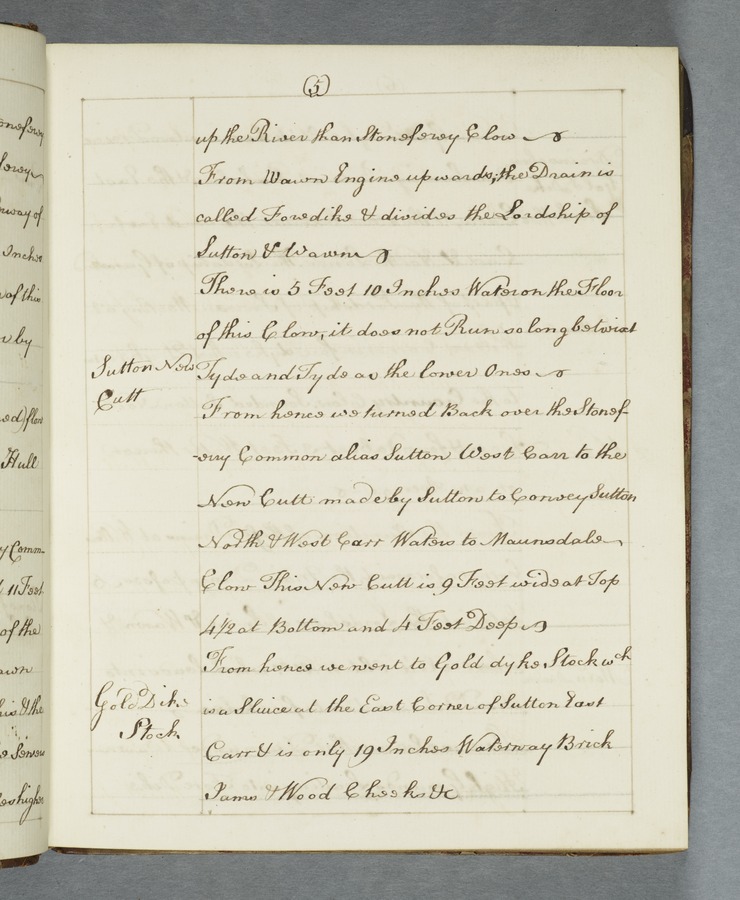 (5)
up the River than Stoneferey Clow
From Wawn Engine upwards, the Drain is
called Foredike & divides the Lordship of
Sutton & Wawn
There is 5 Feet 10 Inches Water on the Floor
of this Clow, it does not Run so long betwixt
Sutton New
Cutt
Tyde and Tyde as the lower Ones
From hence we turned Back over the Stonef-
-erry Common alias Sutton West Carr to the
New Cutt made by Sutton to Convey Sutton
North & West Carr Waters to Maunsdale
Clow This New Cutt is 9 Feet wide at Top
4 1/2 at Bottom and 4 Feet Deep
From hence we went to Gold dyke Stock wch
Gold Dike
Stock
is a Sluice at the East Corner of Sutton East
Carr & is only 19 Inches Waterway Brick
Jams & Wood Cheeks &c
Inches
of this
by
Hull
Comm-
11 Feet
of the